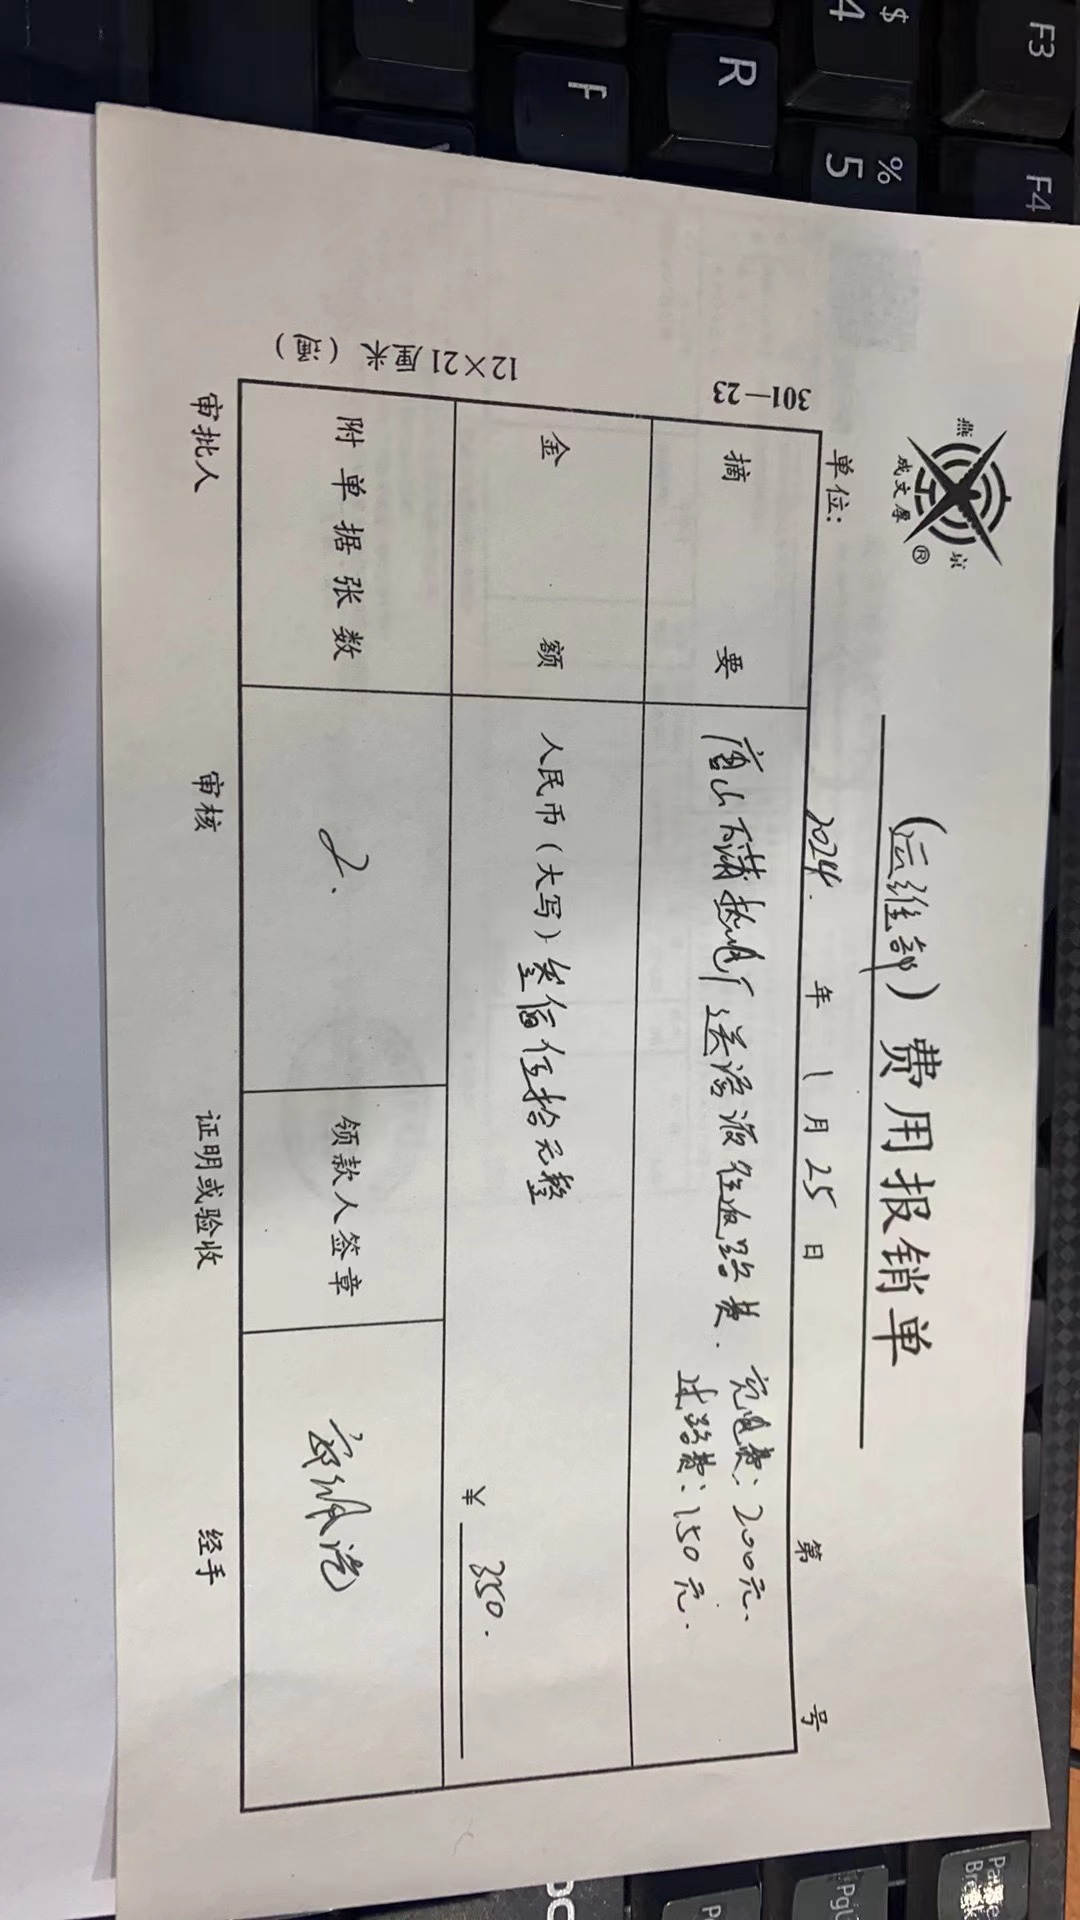 燕 京
成文厚 ®
（运维部）费用报销单
单位： 2024. 年 1 月 25 日 第 号
301—23
摘 要
唐山 热电厂送溶液往返路费. 充电费：200元、
过路费：150元.
金 额
人民币（大写）叁佰伍拾元整
¥ 350.
附单据张数
2.
领款人签章
审批人 审核 证明或验收 经手
12×21厘米
F3
F4
$
4
%
5
R
F
PgU
Break